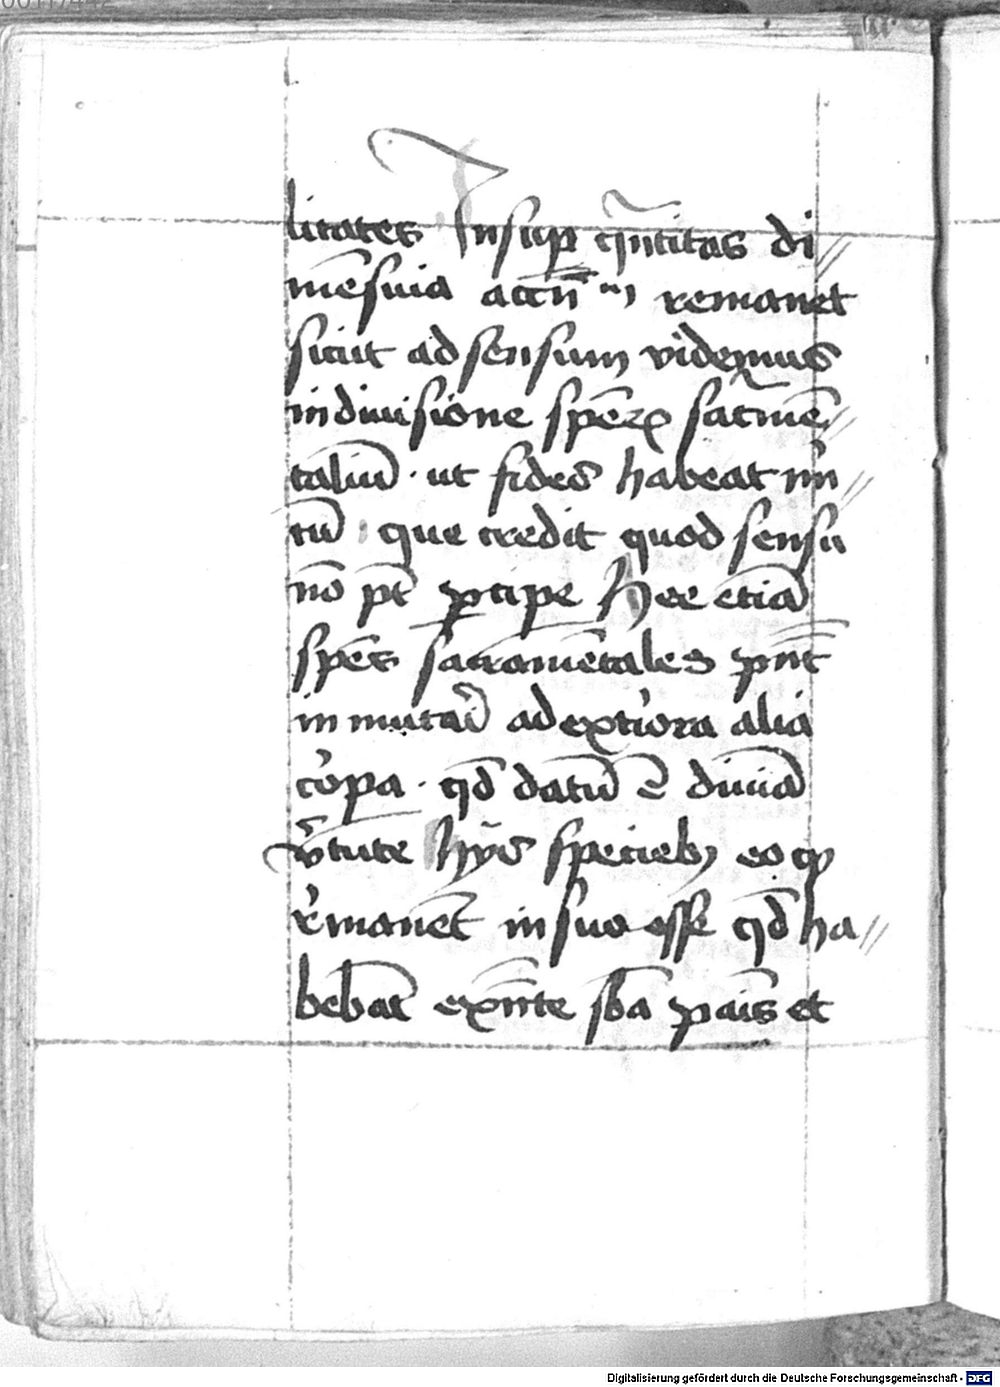 litates Insup qu̅titas di//
me̅suia acci̅ni̅ remanet
sicut ad sensum videmus
in diuisione spe̅ꝝ sac̅me̅//
taliu̅ · ut fides habeat m̅i//
tu̅ que credit quod sensu
no̅ pt̅ ꝑcipe Hec etia̅
spe̅s sacrame̅tales pn̅t
in mutac̅o̅ ad ext̓iora alia
co̓pa · qd̅ datu̅ e̅ diuia̅
v̓tute hys speciebꝫ eo ꝙ
r̓mane̅t in suo esse qd̅ ha//
beba̅t exn̅te sb̅a pais̅ et
Digitalisierung gefördert durch die Deutsche Forschungsgemeinschaft - DFG